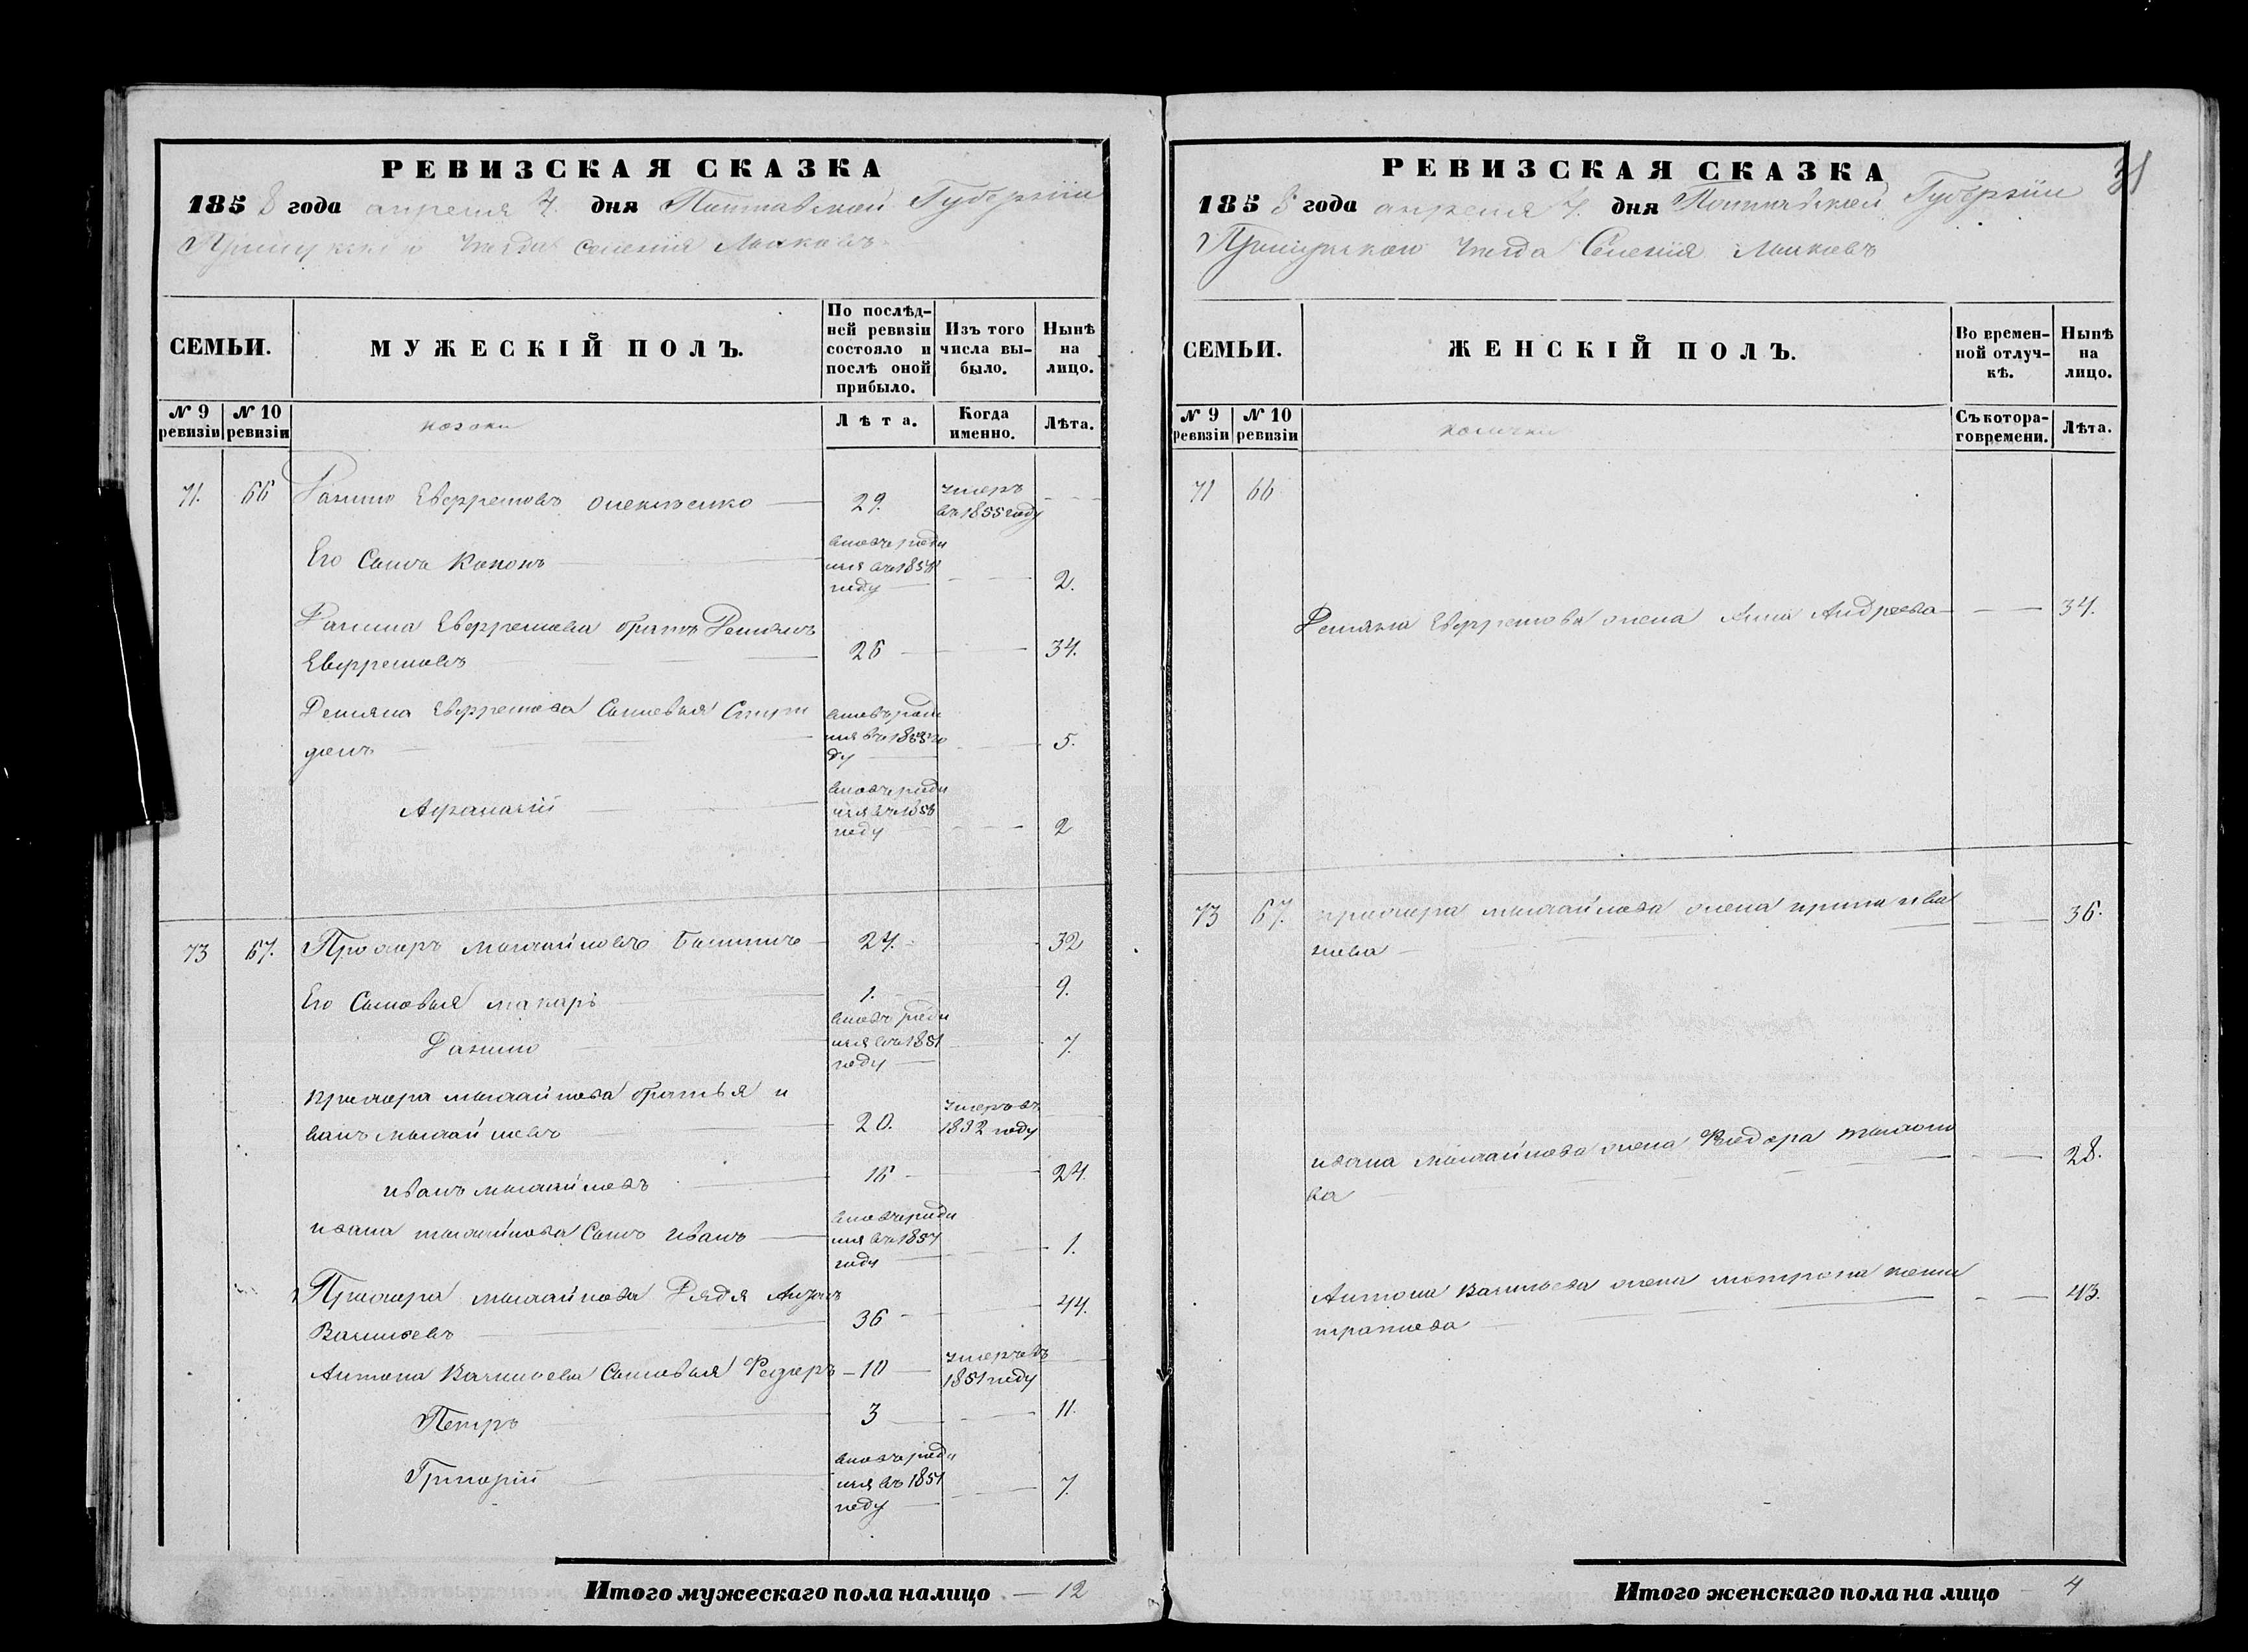 РЕВИЗСКАЯ СКАЗКА
1858 года апреля 7. дня Полтавской Губернiи
Прилуцкаго уезда селенiя
СЕМЬИ.
МУЖЕСКІЙ ПОЛЪ.
По послѣд-
ней ревизіи
состояло и
послѣ оной
прибыло.
Изъ того
числа вы-
было.
Нынѣ
на
лицо.
№ 9
ревизіи
№ 10
ревизіи
козаки
Лѣта.
Когда
именно.
Лѣта.
71. 66 Данило Евфремовъ 29. умеръ
въ 1855 году
Его Сынъ Кононъ вновь роди
лся въ 185
году 2.
Данила Евфремова братъ Демянъ
Евфремовъ 26 34.
Демяна Евфремова Сыновья Спири
донъ вновь роди
лся въ 1853 го
ду 5.
Афанасій вновь роди
лся въ 1856
году 2
73 67. Прохоръ михайловъ 24. 32
Его Сыновья макаръ 1. 9.
Данило вновь роди
лся въ 1851
году 7.
прохора михайлова братья и
ванъ михайловъ 20. умеръ въ
1852 году
иванъ михайловъ 16 24.
ивана михайлова Сынъ иванъ вновь роди
лся въ 1857
году 1.
Прохора михайлова Дядя Антонъ
Васильевъ 36 44.
Антона Васильева Сыновья Федоръ 10 умеръ въ
1851 году
Петръ 3 11.
Григорій вновь роди
лся въ 1851
году 7.
Итого мужескаго пола налицо 12
31
РЕВИЗСКАЯ СКАЗКА
1858 года апреля 7. дня Полтавской Губернiи
Прилуцкаго уезда Селенiя
СЕМЬИ.
ЖЕНСКІЙ ПОЛЪ.
Во времен-
ной отлуч-
кѣ.
Нынѣ
на
лицо.
№ 9
ревизіи
№ 10
ревизіи
козачки
Съ котора-
го времени.
Лѣта.
71 66
Демяна Евфремова жена Анна Андреева 34.
73 67. прохора михайлова жена ирина ива
нова 36.
ивана михайлова жена Федора
ва 28.
Антона Васильева жена мотрона кали
стратова 43.
Итого женскаго пола на лицо 4